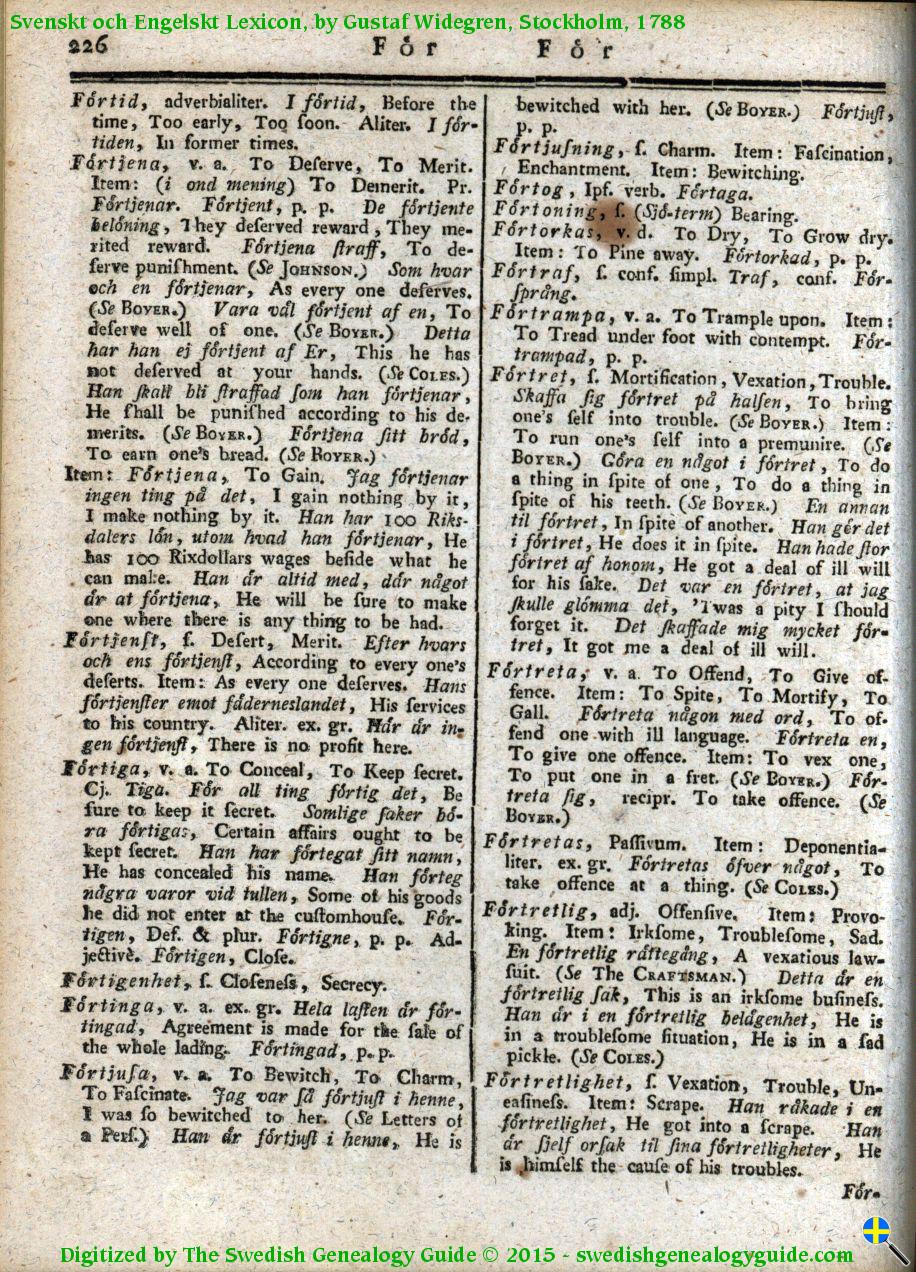 Svenskt och Engelskt Lexicon, by Gustaf Widegren, Stockholm, 1788
226 Fôr Fôr
Fôrtid, adverbialiter. I fôrtid, Before the
time, Too early, Too ſoon. Aliter. I fôr-
tiden, In former times.
Fôrtjena, v. a. To Deſerve, To Merit.
Item: (i ond mening) To Demerit. Pr.
Fôrtjenar. Fôrtjent, p. p. De fôrtjente
belôning, They deſerved reward, They me-
rited reward. Fôrtjena ſtraff, To de-
ſerve puniſhment. (Se JOHNSON.) Som hvar
och en fôrtjenar, As every one deſerves.
(Se BOYER.) Vara vâl fôrtjent af en, To
deſerve well of one. (Se BOYER.) Detta
har han ej fôrtjent af Er, This he has
not deſerved at your hands. (Se COLES.)
Han ſkall bli ſtraffad ſom han fôrtjenar,
He ſhall be puniſhed according to his de-
merits. (Se BOYER.) Fôrtjena ſitt brôd,
To earn one's bread. (Se BOYER.)
Item: Fôrtjena, To Gain. Jag fôrtjenar
ingen ting på det, I gain nothing by it,
I make nothing by it. Han har 100 Riks-
dalers lôn, utom hvad han fôrtjenar, He
has 100 Rixdollars wages beſide what he
can make. Han âr altid med, dâr något
âr at fôrtjena, He will be ſure to make
one where there is any thing to be had.
Fôrtjenſt, ſ. Deſert, Merit. Efter hvars
och ens fôrtjenſt, According to every one's
deſerts. Item: As every one deſerves. Hans
fôrtjenſter emot fâderneslandet, His ſervices
to his country. Aliter. ex. gr. Hâr âr in-
gen fôrtjenſt, There is no profit here.
Fôrtiga, v. a. To Conceal, To Keep ſecret.
Cj. Tiga. Fôr all ting fôrtig det, Be
ſure to keep it ſecret. Somlige ſaker bô-
ra fôrtigas, Certain affairs ought to be
kept ſecret. Han har fôrtegat ſitt namn,
He has concealed his name. Han fôrteg
några varor vid tullen, Some of his goods
he did not enter at the cuſtomhouſe. Fôr-
tigen, Def. & plur. Fôrtigne, p. p. Ad-
jective. Fôrtigen, Cloſe.
Fôrtigenhet, ſ. Cloſeneſs, Secrecy.
Fôrtinga, v. a. ex. gr. Hela laſten âr fôr-
tingad, Agreement is made for the ſale of
the whole lading. Fôrtingad, p. p.
Fôrtjuſa, v. a. To Bewitch, To Charm,
To Faſcinate. Jag var ſå fôrtjuſt i henne,
I was ſo bewitched to her. (Se Letters of
a Perſ.) Han âr fôrtjuſt i henne, He is
bewitched with her. (Se BOYER.) Fôrtjuſt,
p. p.
Fôrtjuſning, ſ. Charm. Item: Faſcination,
Enchantment. Item: Bewitching.
Fôrtog, Ipf. verb. Fôrtaga.
Fôrtoning, ſ. (Sjô-term) Bearing.
Fôrtorkas, v. d. To Dry, To Grow dry.
Item: To Pine away. Fôrtorkad, p. p.
Fôrtraf, ſ. conf. ſimpl. Traf, conf. Fôr-
ſprång.
Fôrtrampa, v. a. To Trample upon. Item:
To Tread under foot with contempt. Fôr-
trampad, p. p.
Fôrtret, ſ. Mortification, Vexation, Trouble.
Skaffa ſig fôrtret på halſen, To bring
one's ſelf into trouble. (Se BOYER.) Item:
To run one's ſelf into a premunire. (Se
BOYER.) Gôra en något i fôrtret, To do
a thing in ſpite of one, To do a thing in
ſpite of his teeth. (Se BOYER.) En annan
til fôrtret, In ſpite of another. Han gôr det
i fôrtret, He does it in ſpite. Han hade ſtor
fôrtret af honom, He got a deal of ill will
for his ſake. Det var en fôrtret, at jag
ſkulle glômma det, 'Twas a pity I ſhould
forget it. Det ſkaffade mig mycket fôr-
tret, It got me a deal of ill will.
Fôrtreta, v. a. To Offend, To Give of-
fence. Item: To Spite, To Mortify, To
Gall. Fôrtreta någon med ord, To of-
fend one with ill language. Fôrtreta en,
To give one offence. Item: To vex one,
To put one in a fret. (Se BOYER.) Fôr-
treta ſig, recipr. To take offence. (Se
BOYER.)
Fôrtretas, Paſſivum. Item: Deponentia-
liter. ex. gr. Fôrtretas ôfver något, To
take offence at a thing. (Se COLES.)
Fôrtretlig, adj. Offenſive. Item: Provo-
king. Item: Irkſome, Troubleſome, Sad.
En fôrtretlig râttegång, A vexatious law-
ſuit. (Se The CRAFTSMAN.) Detta âr en
fôrtretlig ſak, This is an irkſome buſineſs.
Han âr i en fôrtretlig belâgenhet, He is
in a troubleſome ſituation, He is in a ſad
pickle. (Se COLES.)
Fôrtretlighet, ſ. Vexation, Trouble, Un-
eaſineſs. Item: Scrape. Han râkade i en
fôrtretlighet, He got into a ſcrape. Han
âr ſjelf orſak til ſina fôrtretligheter, He
is himſelf the cauſe of his troubles.
Fôr-
Digitized by The Swedish Genealogy Guide © 2015 - swedishgenealogyguide.com